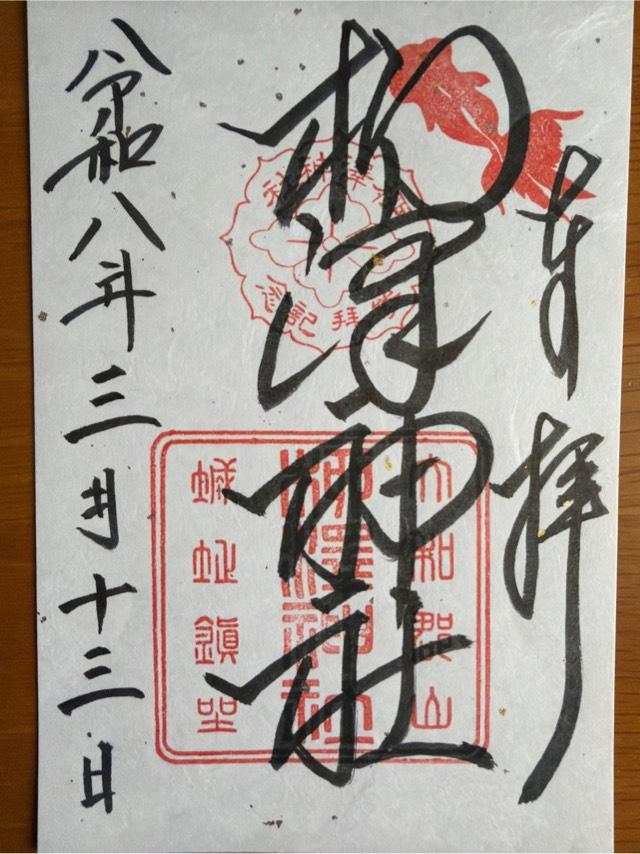 奉拝
柳澤神社
柳澤神社
参拝記念
大和郡山
柳澤神社
城址鎮坐
令和八年三月十三日